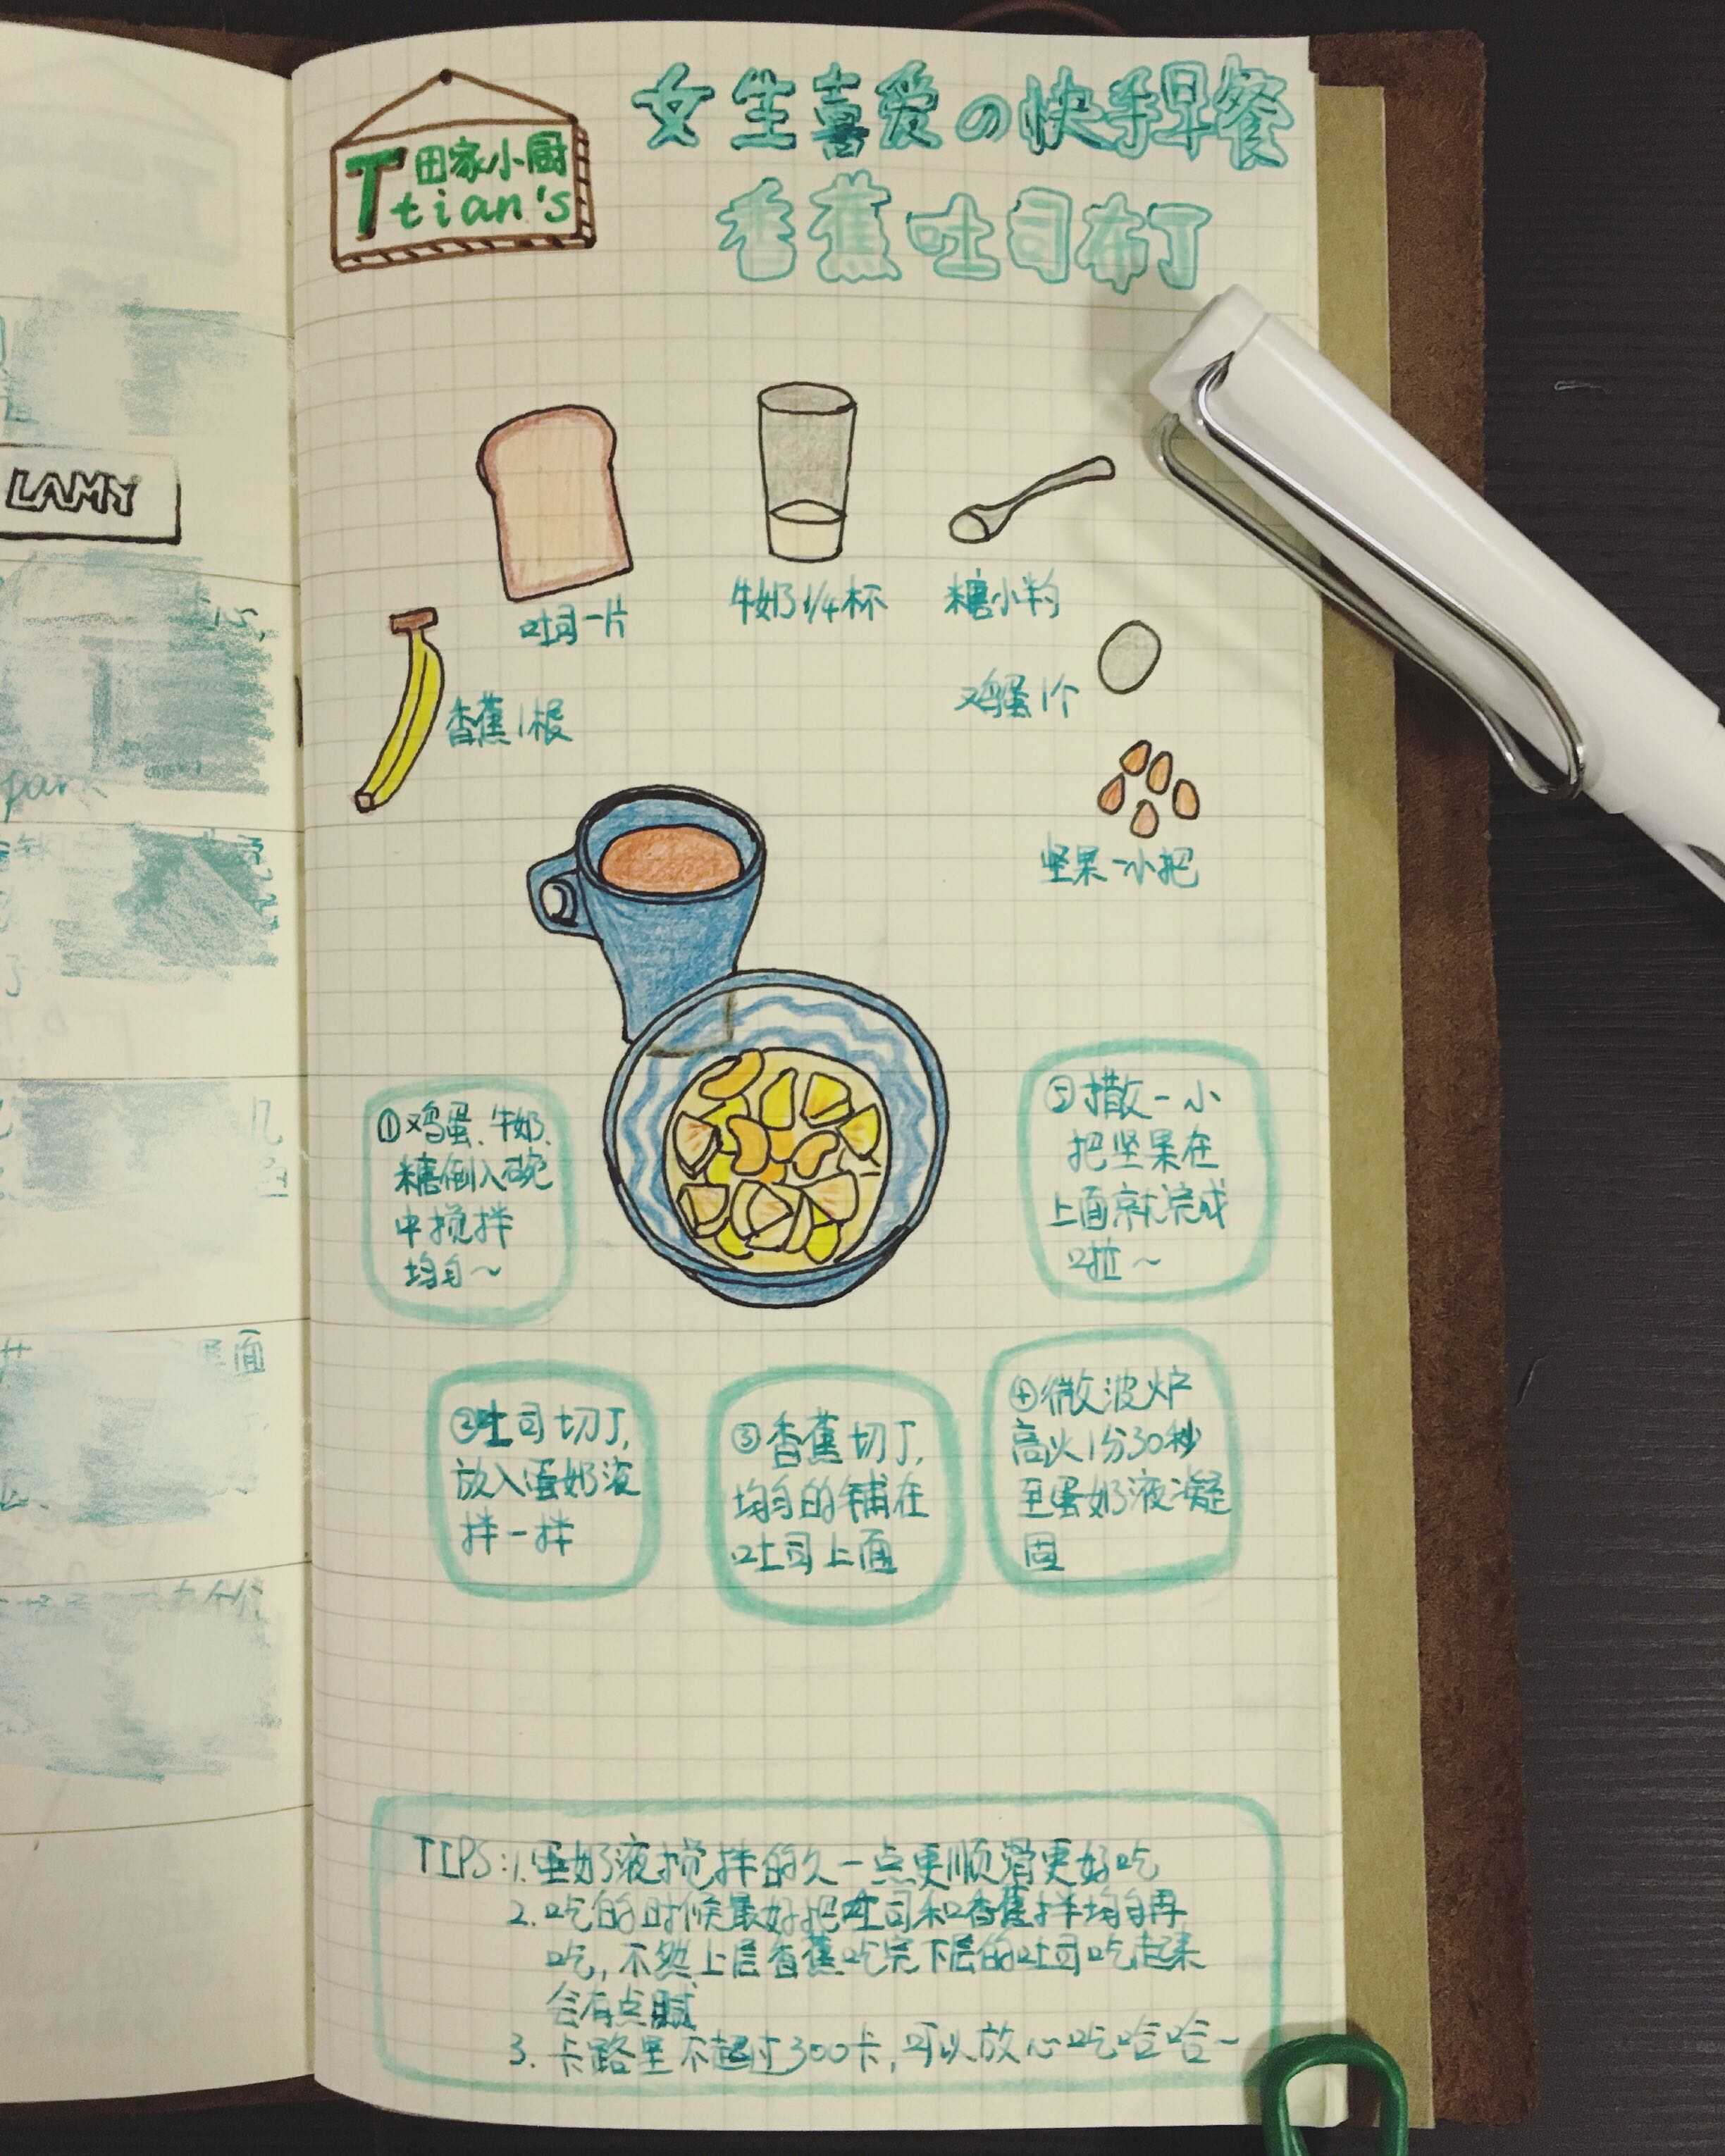 田家小厨
Ttian's
女生喜爱の快手早餐
香蕉吐司布丁
LAMY
吐司一片
牛奶1/4杯
糖小半勺
香蕉1根
鸡蛋1个
坚果一小把
①鸡蛋、牛奶、
糖倒入碗
中搅拌
均匀~
②吐司切丁,
放入蛋奶液
拌一拌
③香蕉切丁,
均匀的铺在
吐司上面
④微波炉
高火1分30秒
至蛋奶液凝
固
⑤撒一小
把坚果在
上面就完成
啦~
TIPS:1.蛋奶液搅拌的久一点更顺滑更好吃
2.吃的时候最好把吐司和香蕉拌均匀再
吃,不然上层香蕉吃完下层的吐司吃起来
会有点腻
3.卡路里不超过300卡,可以放心吃哈哈~